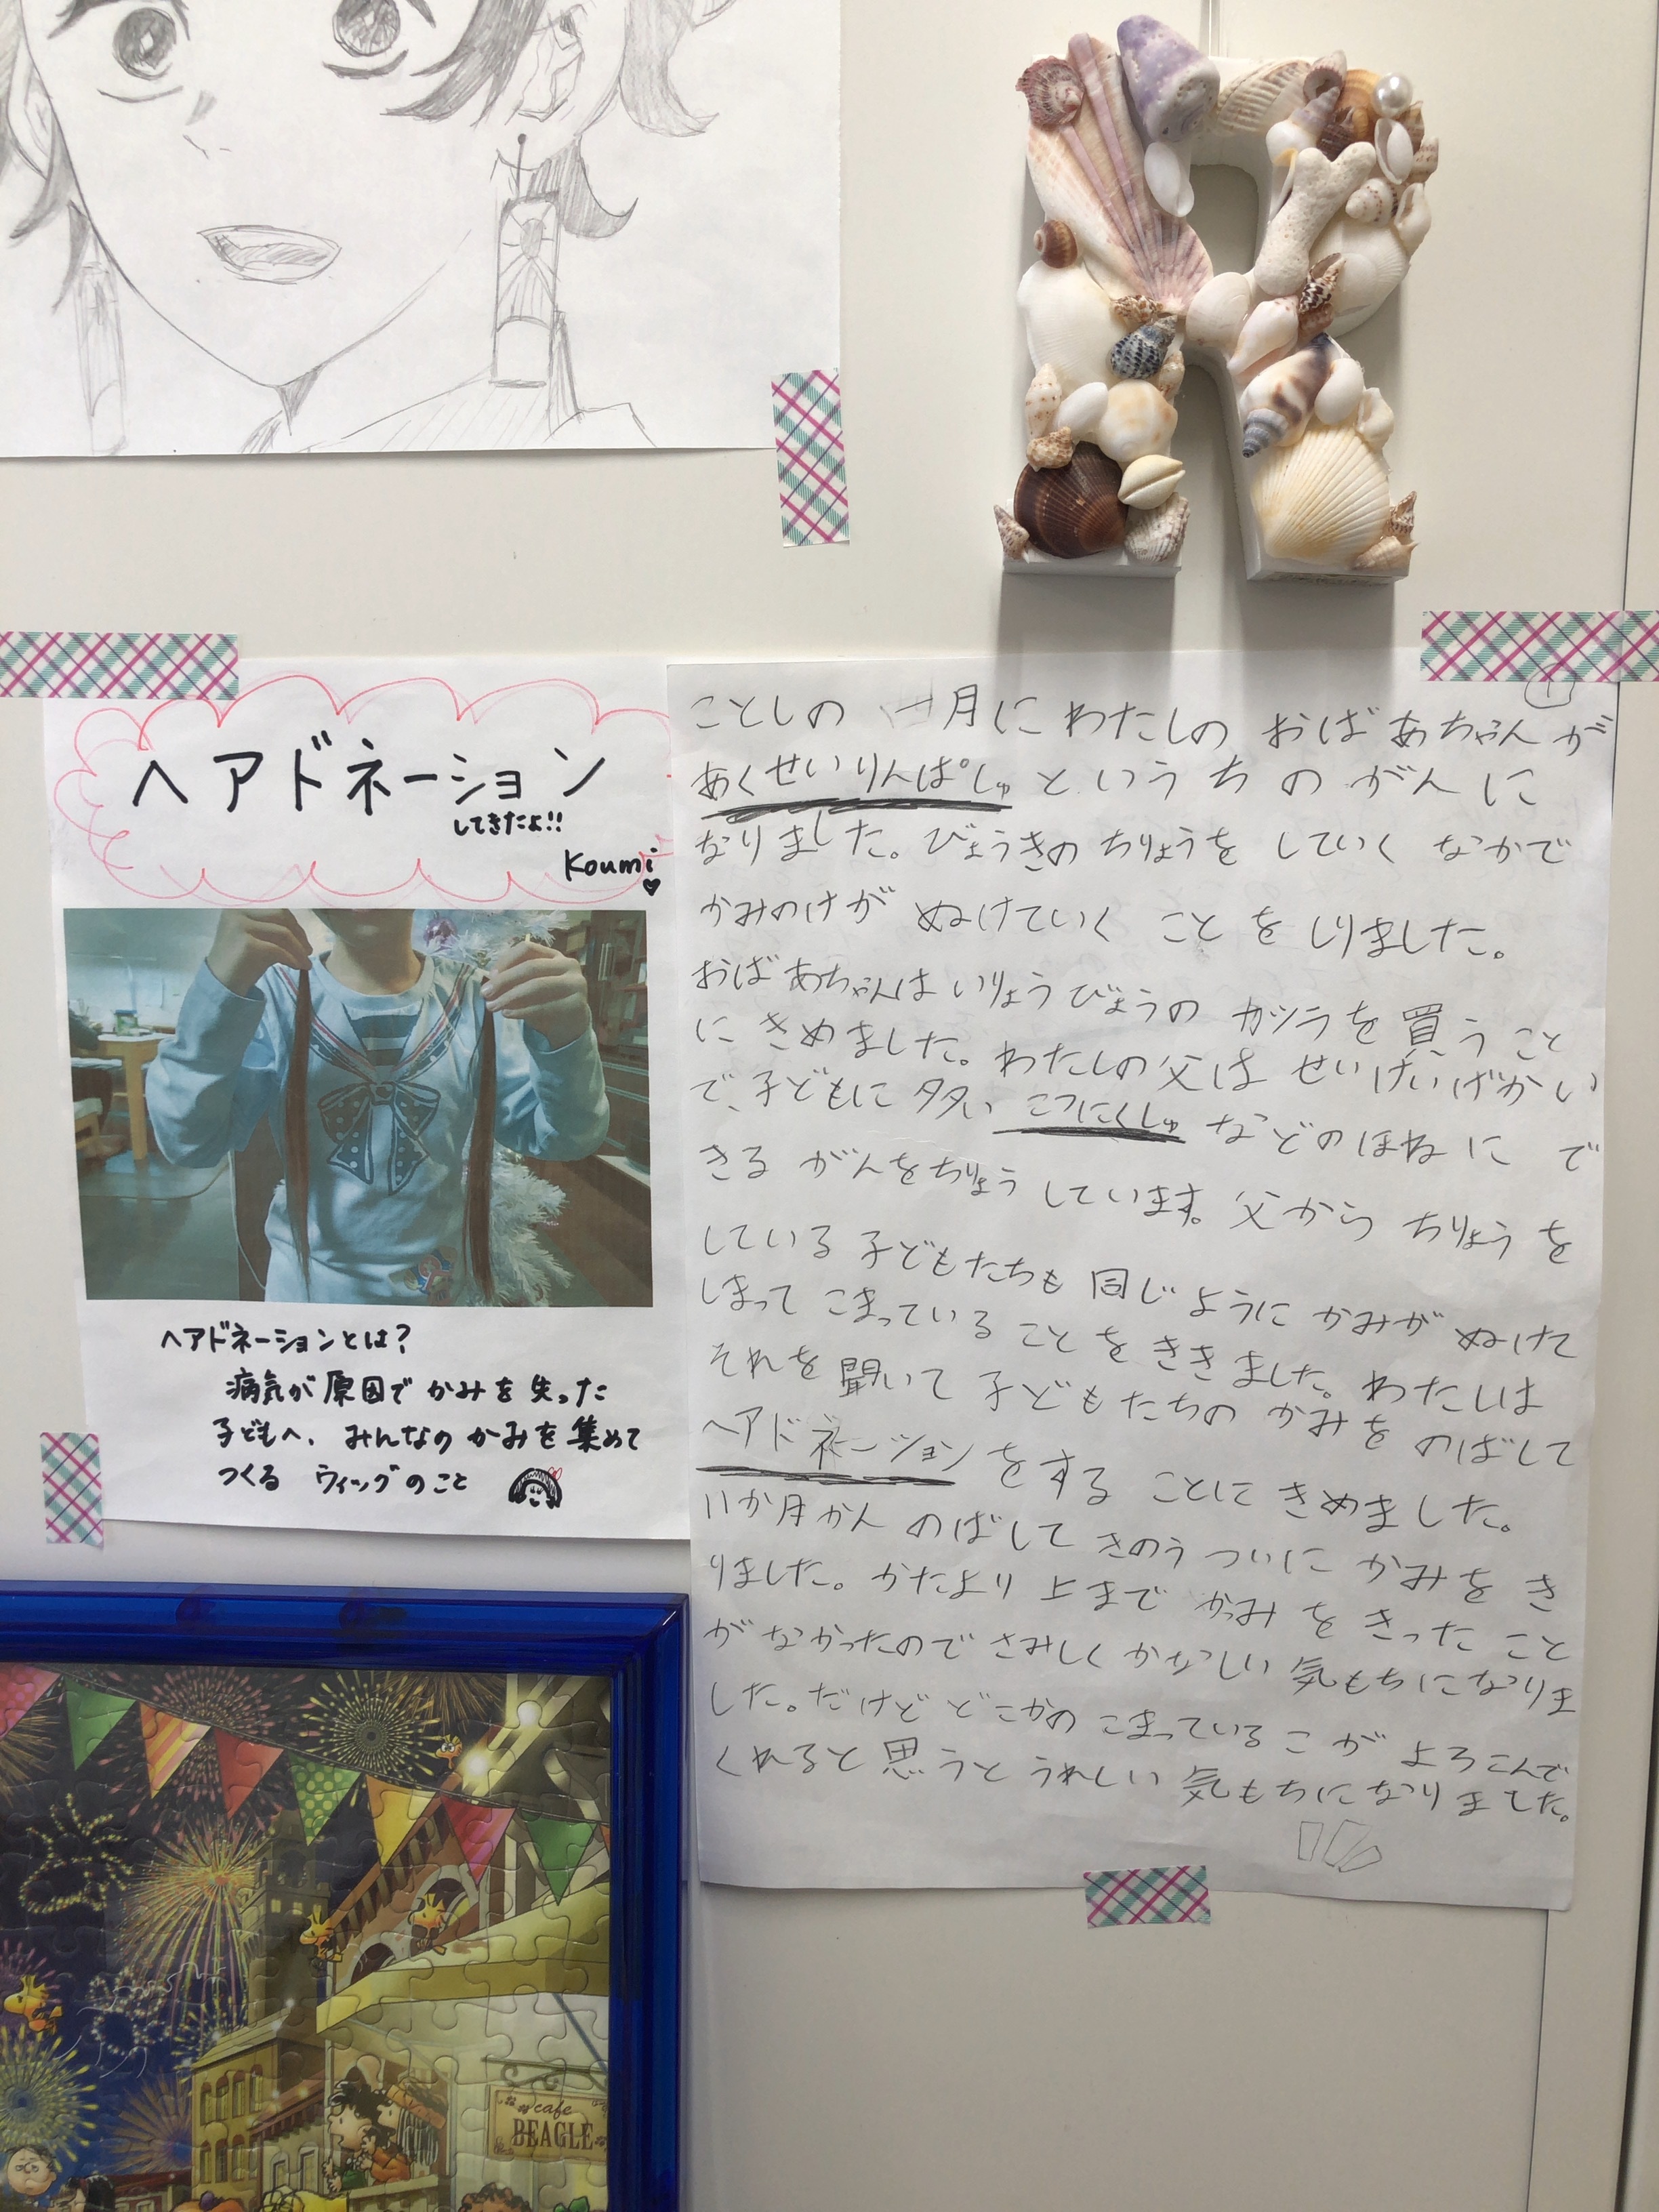 ヘアドネーション
してきたよ!!
Koumi
ヘアドネーションとは?
病気が原因でかみを失った
子どもへ、みんなのかみを集めて
つくる ウィッグのこと
①
ことしの 月にわたしの おばあちゃんが
あくせいりんぱしゅ というちのがんに
なりました。びょうきの ちりょうを していく なかで
かみのけが ぬけていく ことを しりました。
おばあちゃんは いりょうびょうの カツラを買うこと
にきめました。わたしの父は せいけいげかい
で、子どもに多い こつにくしゅ などのほねに で
きる がんをちりょう しています。父から ちりょうを
している 子どもたちも 同じように かみが ぬけて
しまって こまっている ことを ききました。わたしは
それを聞いて 子どもたちの かみを のばして
ヘアドネーション をする ことに きめました。
11か月かん のばして きのう ついに かみを き
りました。かたより 上まで かみ を きった こと
がなかったので さみしく かなしい 気もちになりま
した。だけど どこかの こまっている こ が よろこんで
くれると思うと うれしい 気もちになりました。
cafe
BEAGLE